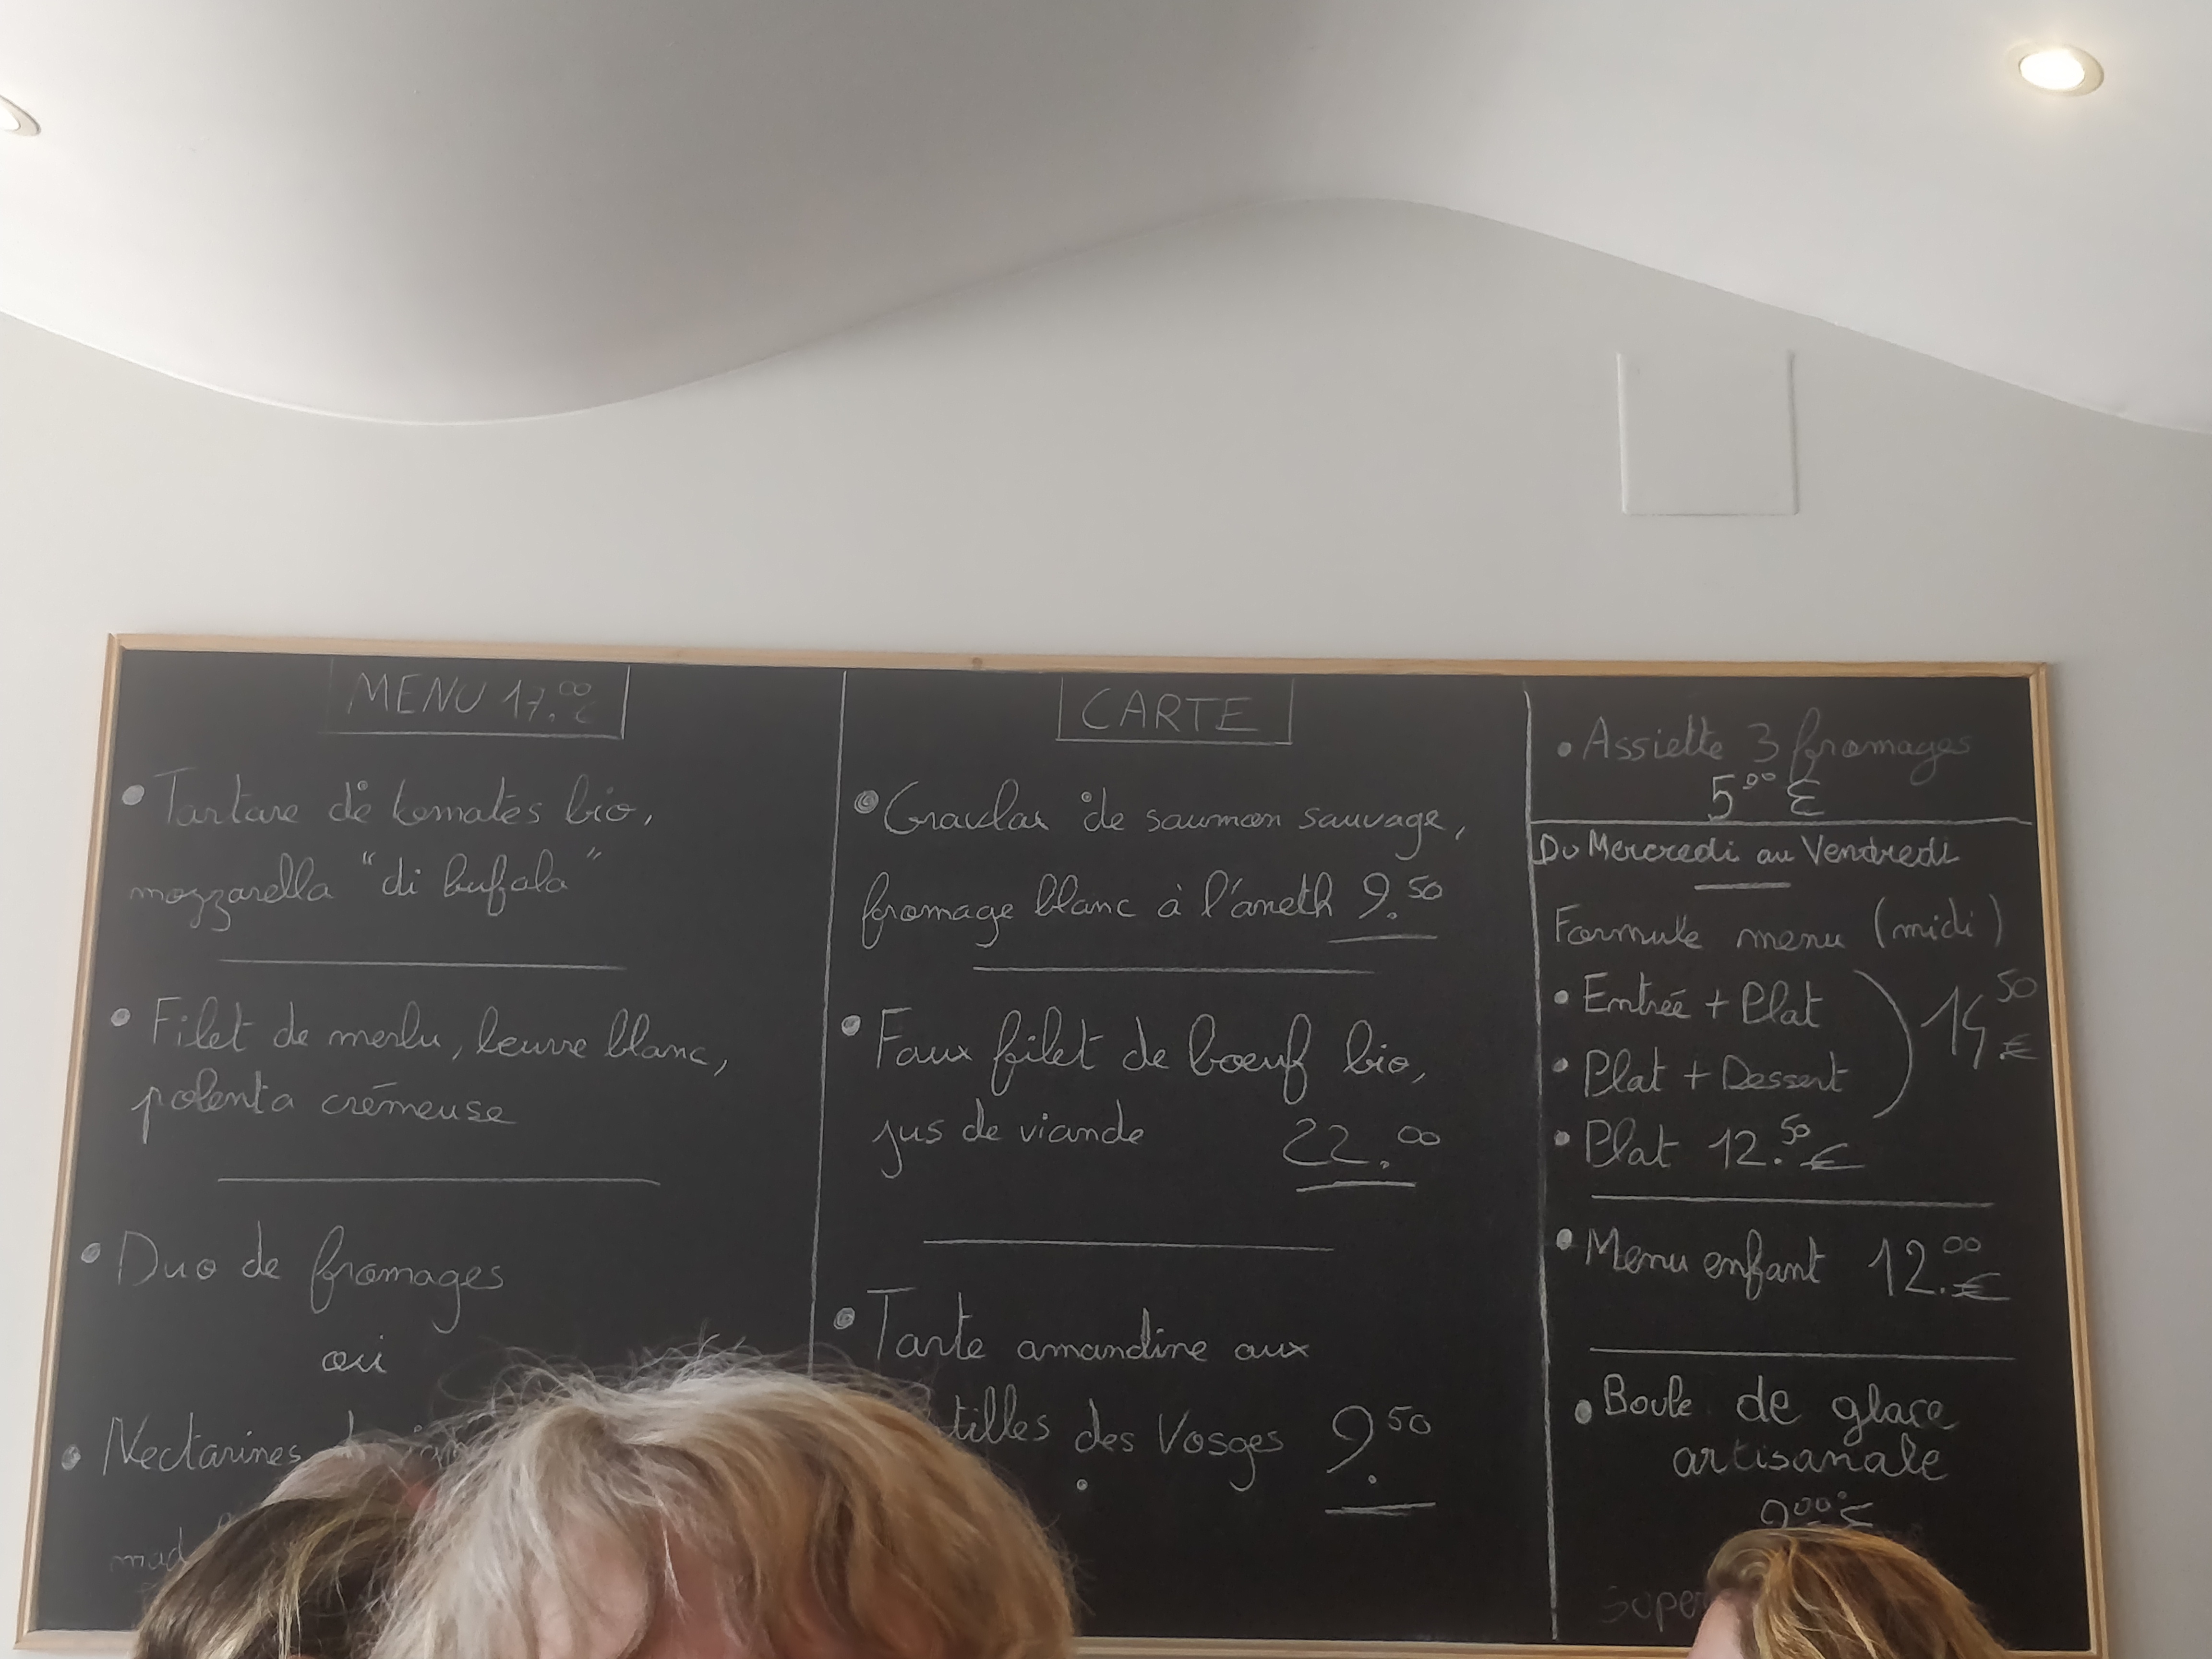 MENU 17.00 €
• Tartare de tomates bio,
mozzarella "di bufala"
• Filet de merlu, beurre blanc,
polenta crémeuse
• Duo de fromages
ou
• Nectarines
CARTE
• Gravlax de saumon sauvage,
fromage blanc à l'aneth 9.50
• Faux filet de bœuf bio,
jus de viande 22.00
• Tarte amandine aux
tilles des Vosges 9.50
• Assiette 3 fromages
5.00 €
Du Mercredi au Vendredi
Formule menu (midi)
• Entrée + Plat
14.50 €
• Plat + Dessert
• Plat 12.50 €
• Menu enfant 12.00 €
• Boule de glace
artisanale